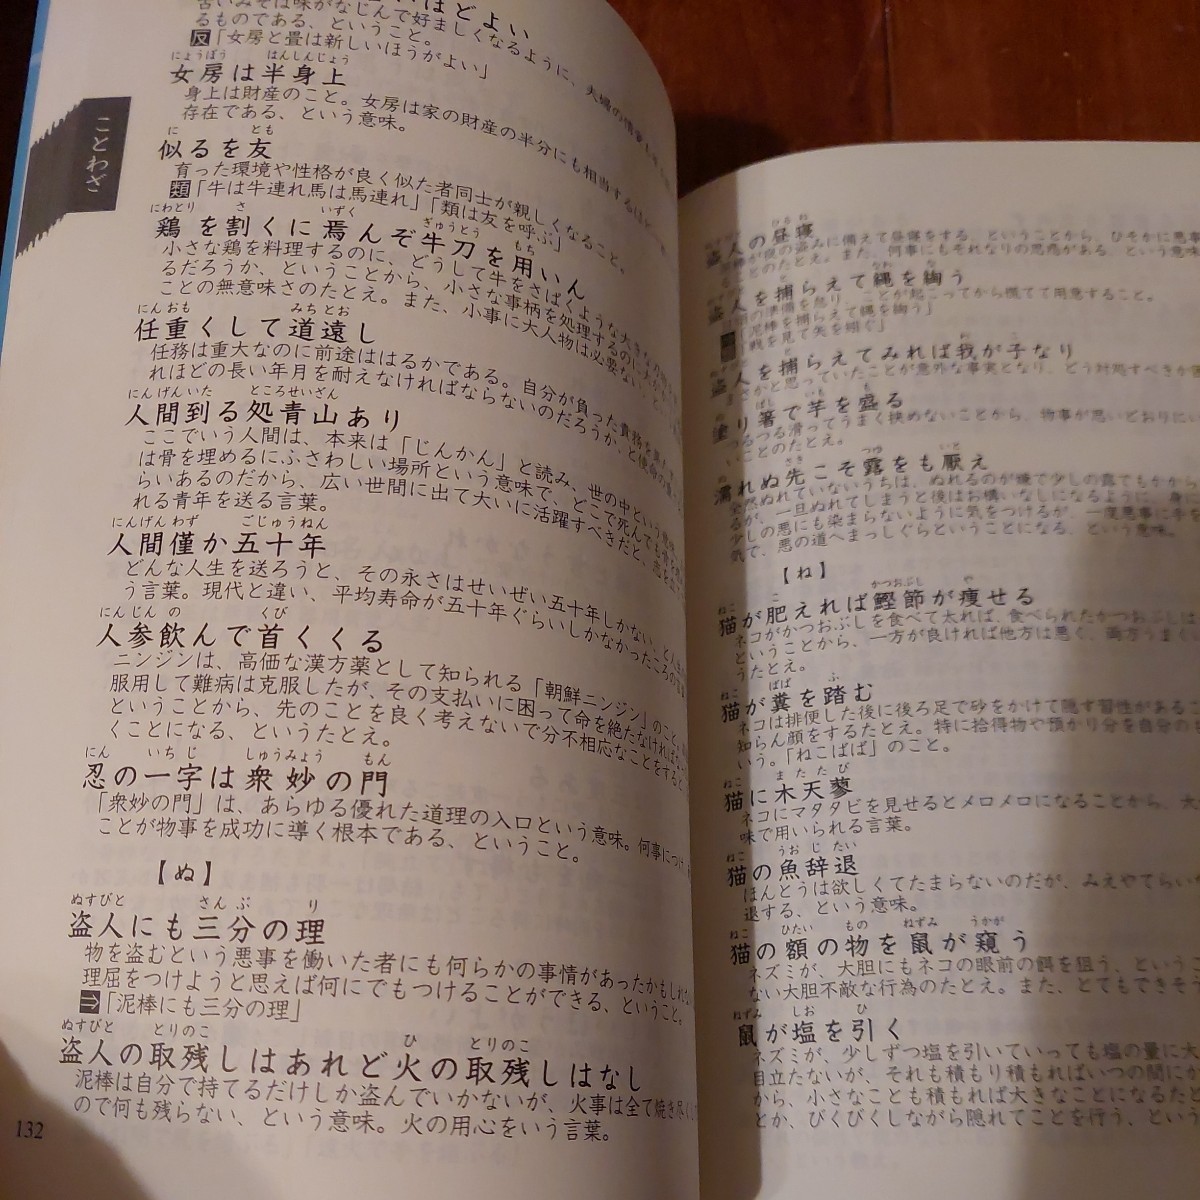 ことわざ
いはどよい
古いみそは味がなじんで好ましくなるように、夫婦の情愛も
るものである、ということ。
反「女房と畳は新しいほうがよい」
女房は半身上
にょうぼう はんしんじょう
身上は財産のこと。女房は家の財産の半分にも相当するほど
存在である、という意味。
に とも
似るを友
育った環境や性格が良く似た者同士が親しくなること。
類「牛は牛連れ馬は馬連れ」「類は友を呼ぶ」
にわとり さ いずく ぎゅうとう もち
鶏を割くに焉んぞ牛刀を用いん
小さな鶏を料理するのに、どうして牛をさばくような大きな
るだろうか、ということから、小さな事柄を処理するのに
ことの無意味さのたとえ。また、小事に大人物は必要ない
にん おも みち とお
任重くして道遠し
任務は重大なのに前途ははるかである。自分が負った責務を
れほどの長い年月を耐えなければならないのだろうか、と
にんげん いた ところ せいざん
人間到る処青山あり
ここでいう人間は、本来は「じんかん」と読み、世の中という意味
は骨を埋めるにふさわしい場所という意味で、どこで死んでも
らいあるのだから、広い世間に出て大いに活躍すべきだと、
れる青年を送る言葉。
にんげん わず ごじゅうねん
人間僅か五十年
どんな人生を送ろうと、その永さはせいぜい五十年しかない、と
う言葉。現代と違い、平均寿命が五十年ぐらいしかなかったころの言葉
にんじん の くび
人参飲んで首くくる
ニンジンは、高価な漢方薬として知られる「朝鮮ニンジン」のこと。
服用して難病は克服したが、その支払いに困って命を絶たなければ
ということから、先のことを良く考えないで分不相応なことをすると
くことになる、というたとえ。
にん いちじ しゅうみょう もん
忍の一字は衆妙の門
「衆妙の門」は、あらゆる優れた道理の入口という意味。何事につけ
ことが物事を成功に導く根本である、ということ。
【ぬ】
ぬすびと さんぶ り
盗人にも三分の理
物を盗むという悪事を働いた者にも何らかの事情があったかもしれな
理屈をつけようと思えば何にでもつけることができる、ということ。
⇒「泥棒にも三分の理」
ぬすびと とりのこ ひ とりのこ
盗人の取残しはあれど火の取残しはなし
泥棒は自分で持てるだけしか盗んでいかないが、火事は全て焼き尽く
ので何も残らない、という意味。火の用心をいう言葉。
132
ひるね
盗人の昼寝
が夜の盗みに備えて昼寝をする、ということから、ひそかに悪事
ことのたとえ。また、何事にもそれなりの思惑がある、という意味
盗人を捕らえて縄を綯う
の準備を怠り、ことが起こってから慌てて用意すること。
「泥棒を捕らえて縄を綯う」
盗人を捕らえてみれば我が子なり
さかと思っていたことが意外な事実となり、どう対処すべきか
ばし いも も
塗り箸で芋を盛る
つるつる滑ってうまく挟めないことから、物事が思いどおりにい
いことのたとえ。
さき つゆ いと
濡れぬ先こそ露をも厭え
全然ぬれていないうちは、ぬれるのが嫌で少しの露でも
るが、一旦ぬれてしまうと後はお構いなしになるように、身に
少しの悪にも染まらないように気をつけるが、一度悪事に手を
気で、悪の道へまっしぐらということになる、という意味。
【ね】
ねこ こ かつおぶし や
猫が肥えれば鰹節が痩せる
ネコがかつおぶしを食べて太れば、食べられたかつおぶしは
ということから、一方が良ければ他方は悪く、両方うまく
うたとえ。
ねこ ばば ふ
猫が糞を踏む
ネコは排便した後に後ろ足で砂をかけて隠す習性があるこ
知らん顔をするたとえ。特に拾得物や預かり分を自分のも
いう。「ねこばば」のこと。
ねこ またたび
猫に木天蓼
ネコにマタタビを見せるとメロメロになることから、大
味で用いられる言葉。
ねこ うお じたい
猫の魚辞退
ほんとうは欲しくてたまらないのだが、みえやてらいか
退する、という意味。
ねこ ひたい もの ねずみ うかが
猫の額の物を鼠が窺う
ネズミが、大胆にもネコの眼前の餌を狙う、というこ
ない大胆不敵な行為のたとえ。また、とてもできそう
ねずみ しお ひ
鼠が塩を引く
ネズミが、少しずつ塩を引いていっても塩の量に大
目立たないが、それも積もり積もればいつの間にか
から、小さなことも積もれば大きなことになるたと
とか、びくびくしながら隠れてことを行う、という